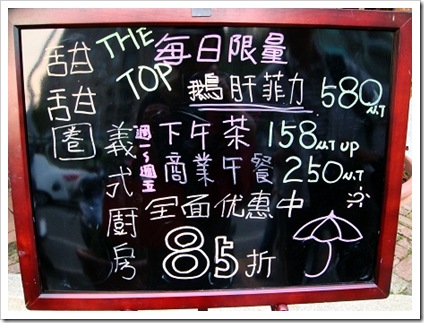 甜甜圈
THE TOP
義式廚房
每日限量
鵝肝菲力 580 NT
週一~週五
下午茶 158 NT UP
商業午餐 250 NT
全面优惠中
85折